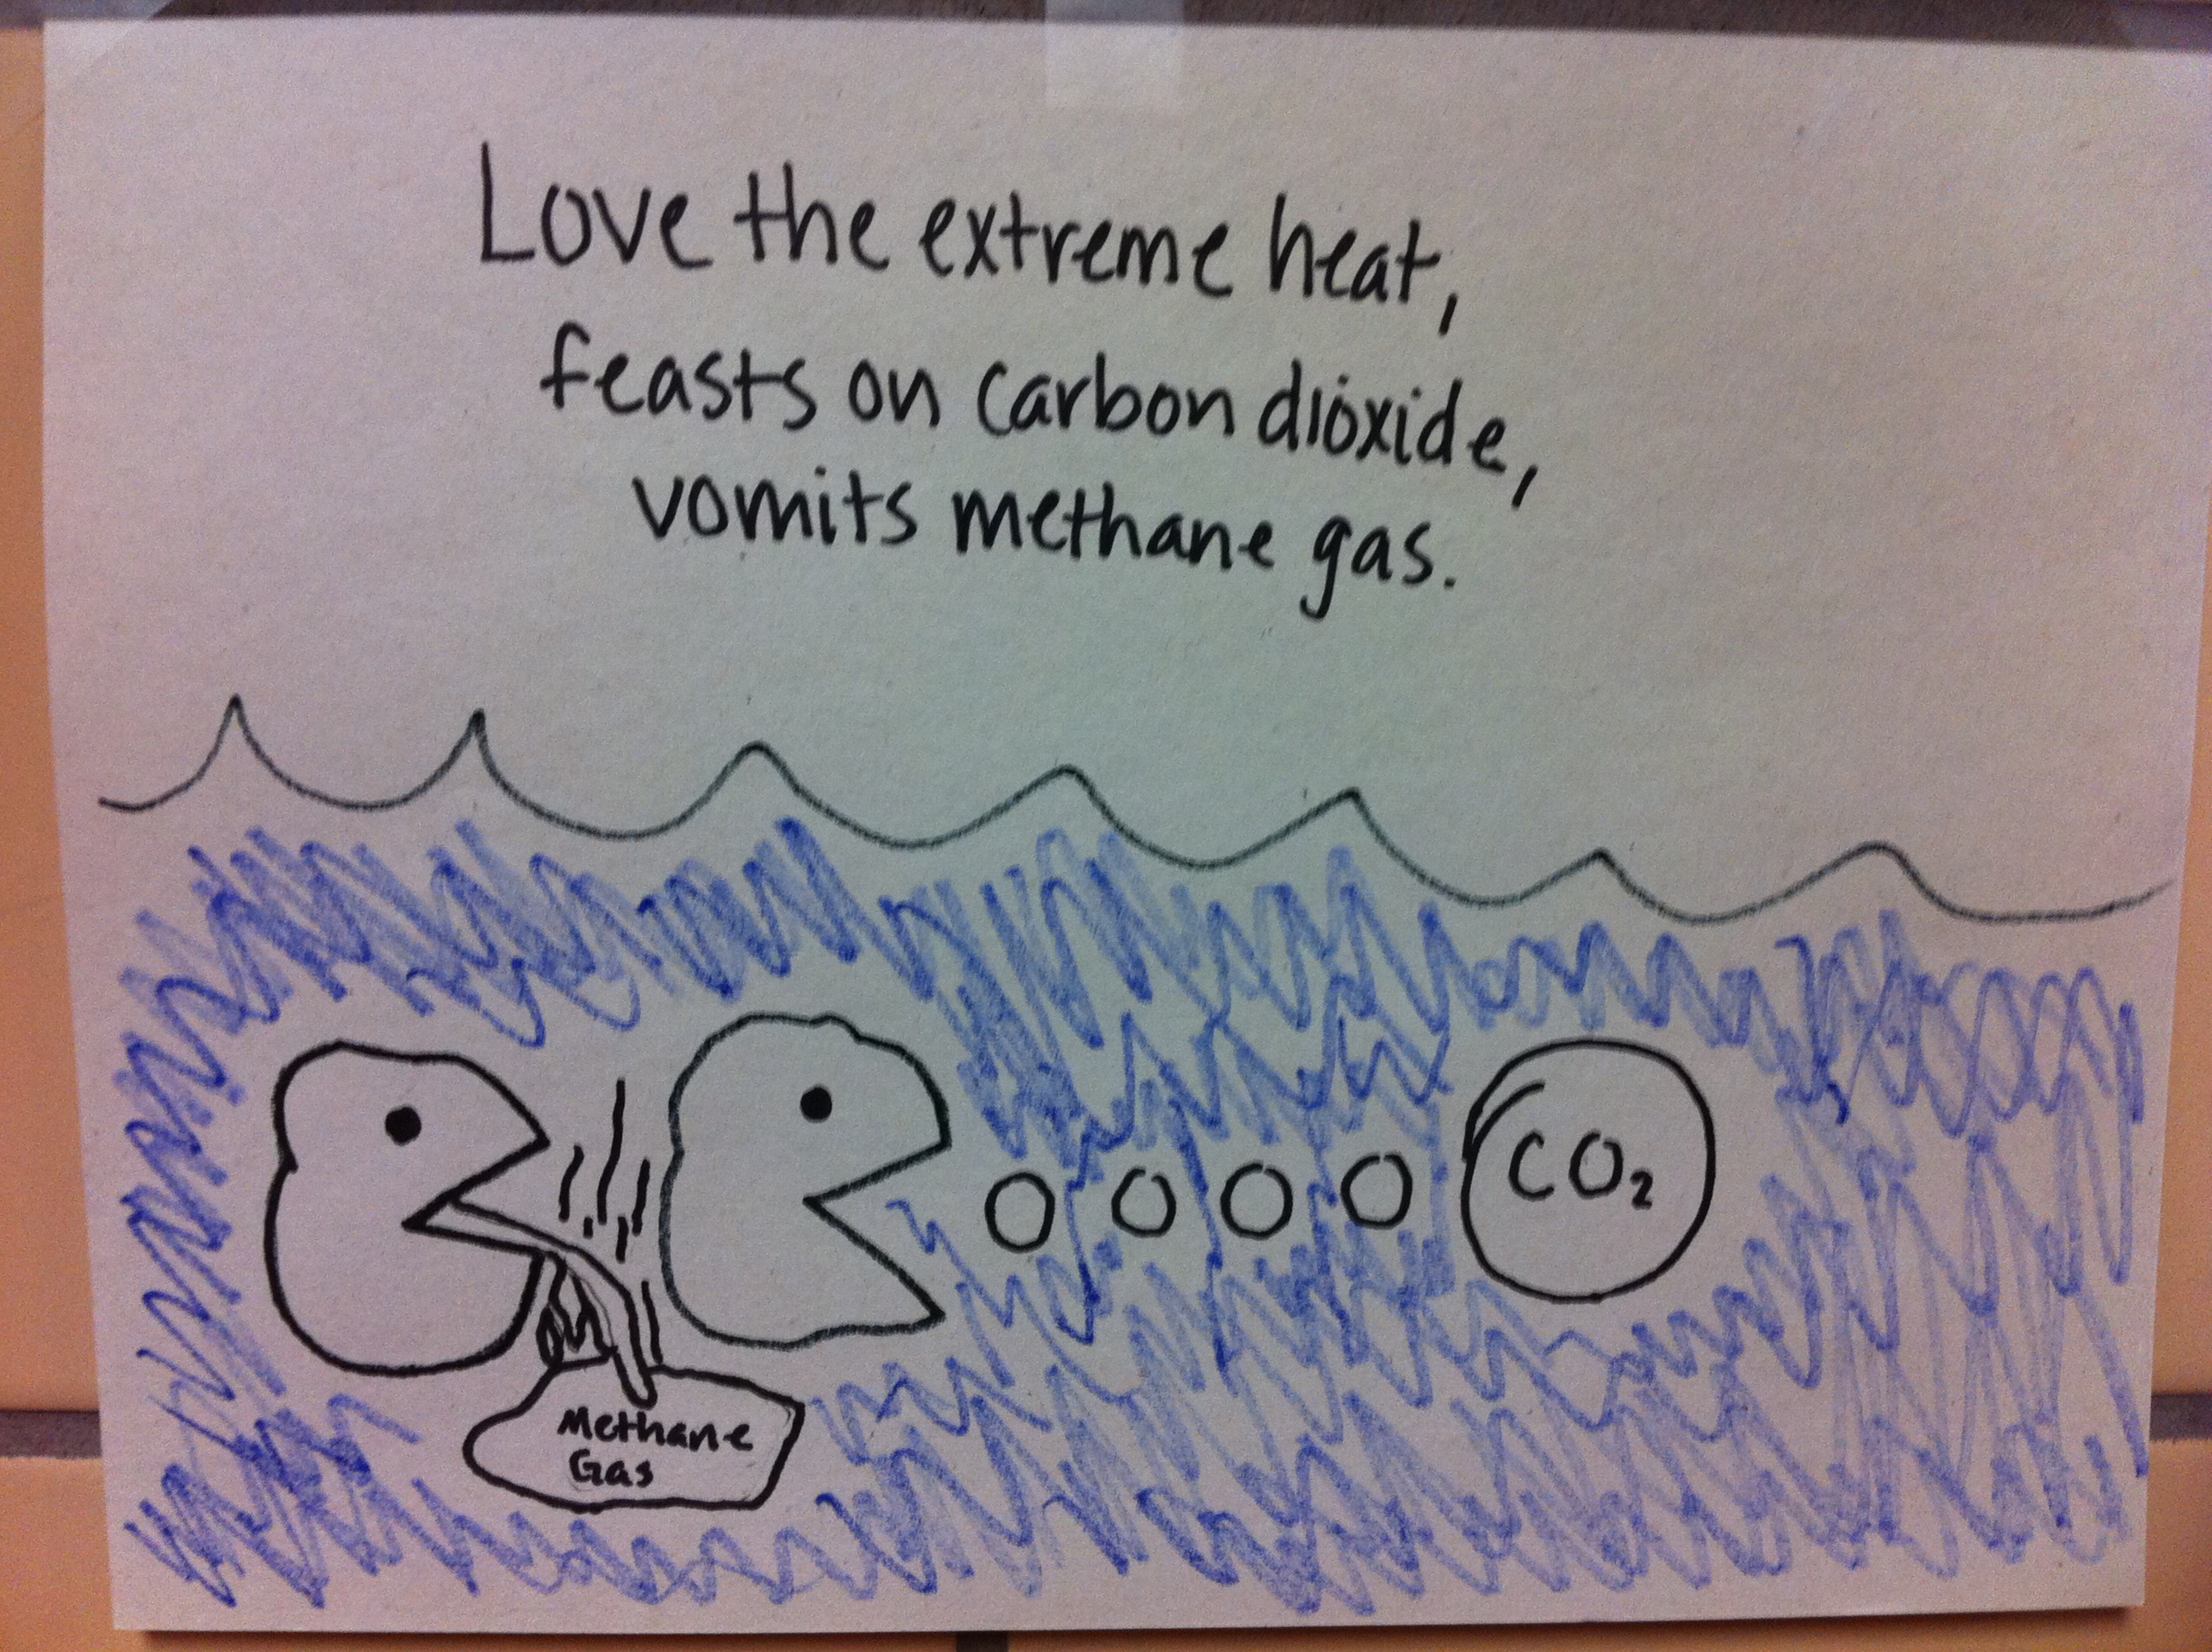 Love the extreme heat,
feasts on carbon dioxide,
vomits methane gas.
CO₂
Methane
Gas